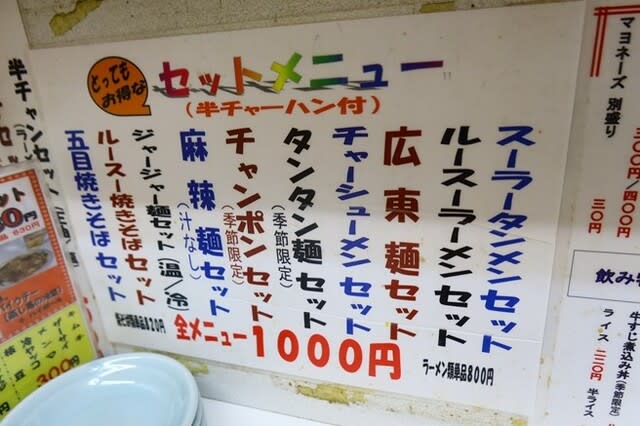 とっても
お得な
セットメニュー
(半チャーハン付)
スーラータンメンセット
ルースーラーメンセット
広東麺セット
チャーシューメンセット
タンタン麺セット
(季節限定)
チャンポンセット
(季節限定)
麻辣麺セット
(汁なし)
ジャージャー麺セット(温/冷)
ルースー焼きそばセット
五目焼きそばセット
全メニュー1000円
ラーメン類単品800円
マヨネーズ 別盛り
三〇円
三〇〇/四〇〇円
飲み
牛すじ煮込み丼
(季節限定)
ライス 二二〇円 半ライス
半チャンセット
セット
630円
300円